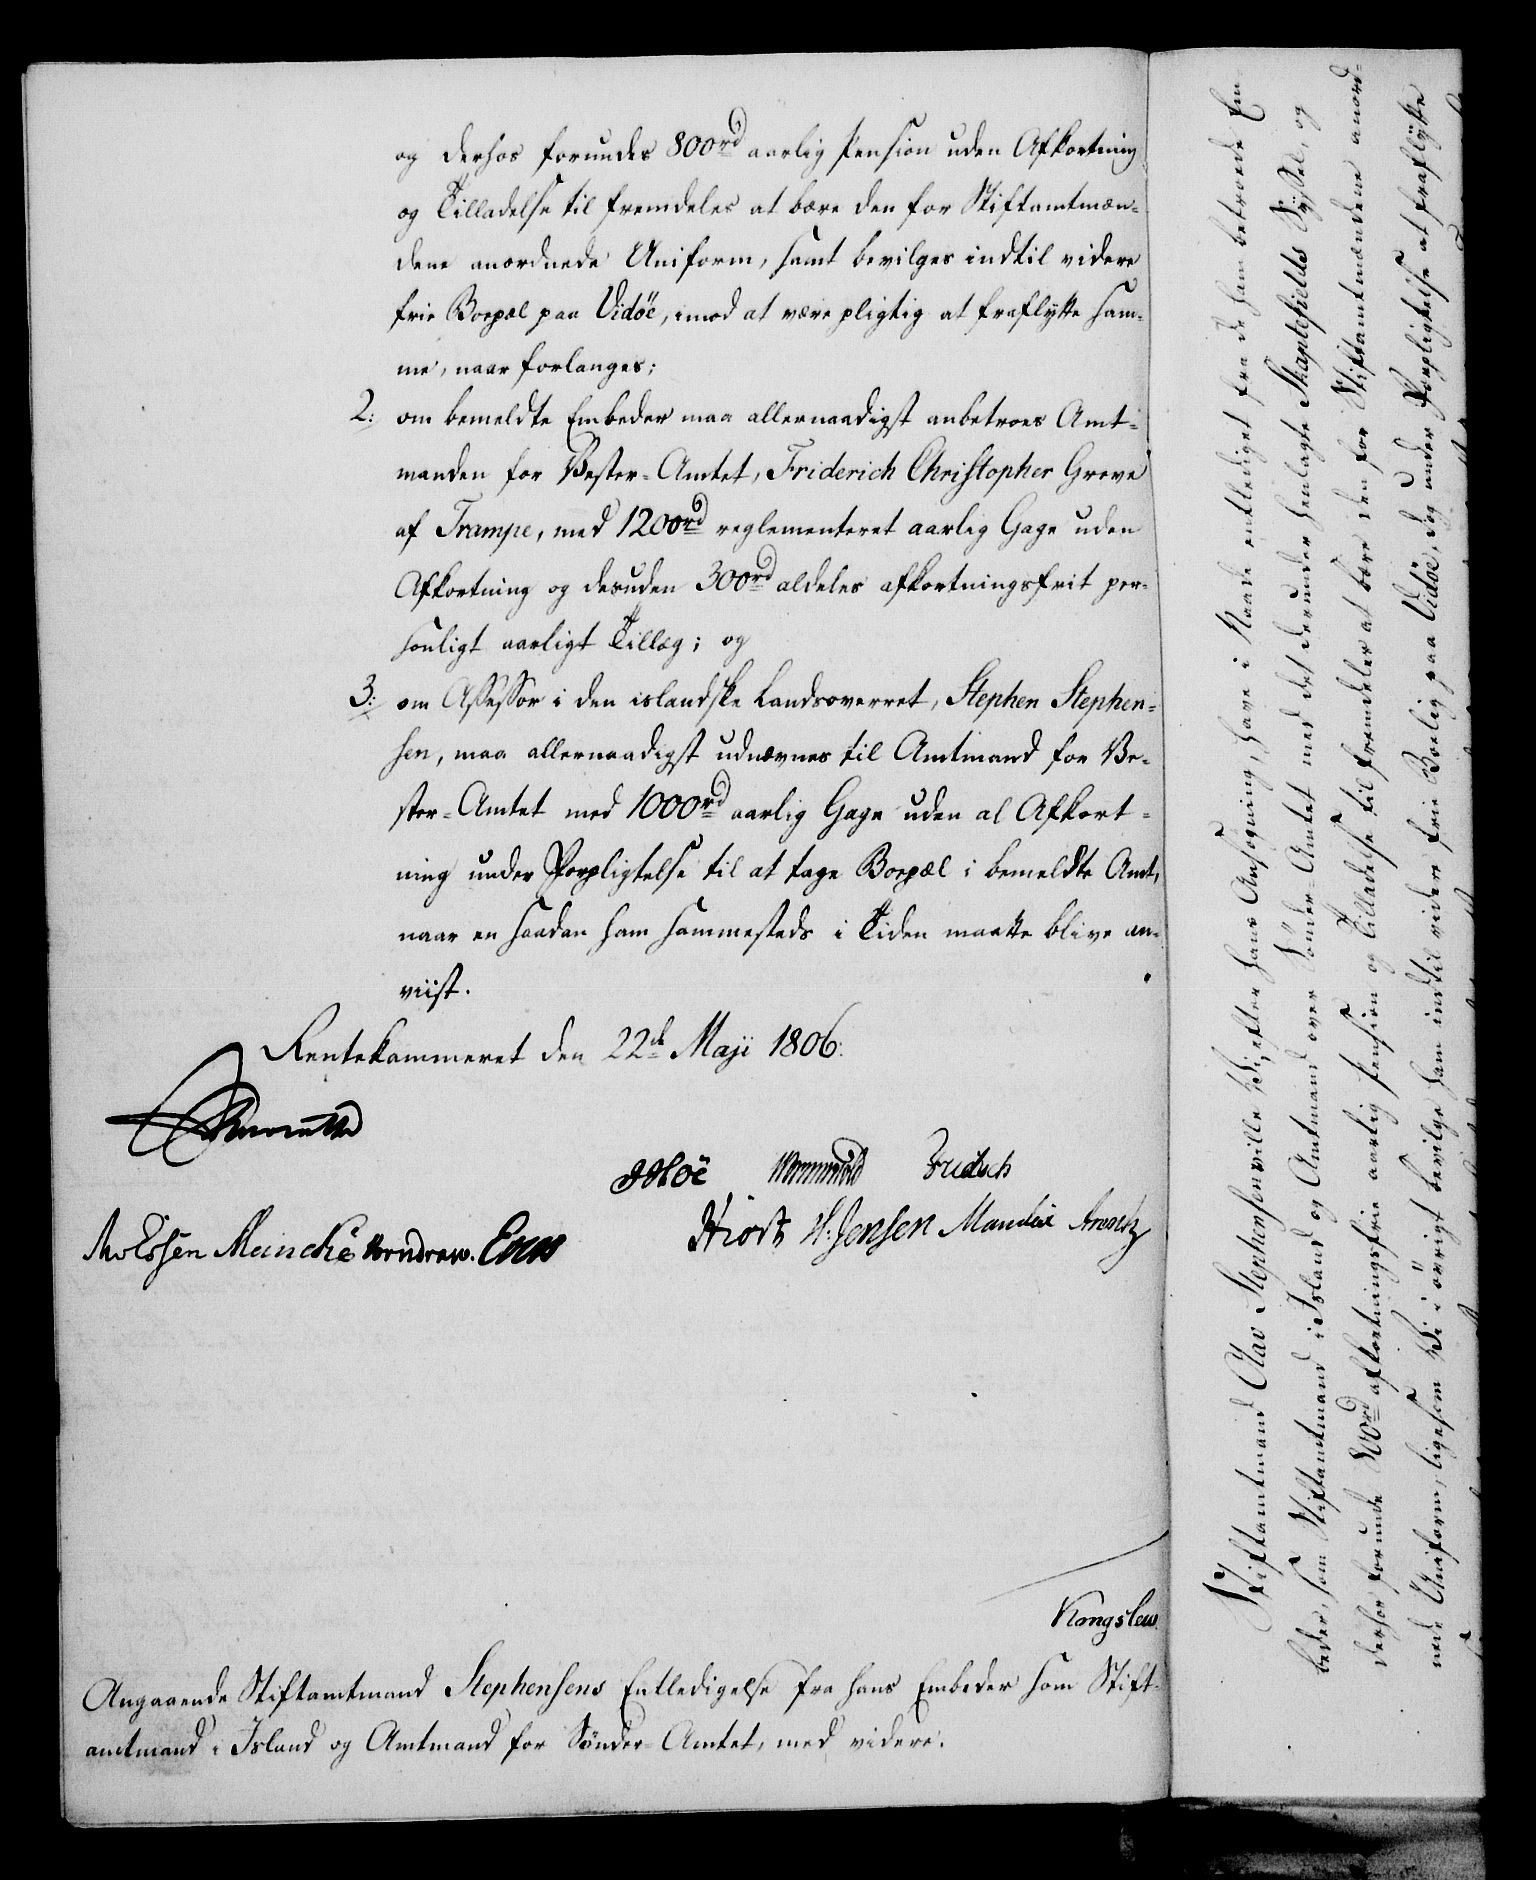 og derhos forundes 800rd aarlig Pension uden Afkortning
og Tilladelse til fremdeles at bære den for Stiftamtmæn-
dene anordnede Uniform, samt bevilges indtil videre
frie Boepæl paa Vidöe, imod at være pligtig at fraflytte sam-
me, naar forlanges;
2: om bemeldte Embeder maa allernaadigst anbetroes Amt-
manden for Vester-Amtet, Friderich Christopher Greve
af Trampe, med 1200rd reglementeret aarlig Gage uden
Afkortning og desuden 300rd aldeles afkortningsfrit per-
sonligt aarligt Tillæg; og
3: om Assessor i den islandske Landsoverret, Stephen Stephen-
sen, maa allernaadigst udnævnes til Amtmand for Ve-
ster-Amtet med 1000rd aarlig Gage uden al Afkort-
ning under Forpligtelse til at tage Boepæl i bemeldte Amt,
naar en saadan ham sammesteds i Tiden maatte blive an-
viist.
Rentekammeret den 22de Maji 1806.
Wormskiold
Hiort H: Jensen Mandix Arentz
Meincke
Angaaende Stiftamtmand Stephensens Entledigelse fra hans Embeder som Stift-
amtmand i Island og Amtmand for Sönder-Amtet, med videre.
Stiftamtmand Olav Stephensen ville Vi, efter hans Ansögning, have i Naade entlediget fra de ham betroede Em-
beder, som Stiftamtmand i Island og Amtmand over Sönder-Amtet med det derunder henlagte Skaptefields Syssel, og
derhos forunde 800rd afkortningsfrie aarlig Pension og Tilladelse til fremdeles at bære den for Stiftamtmændene anord-
nede Uniform, ligesom Vi i övrigt bevilge ham indtil videre frie Bolig paa Vidöe, dog under Forpligtelse at fraflytte